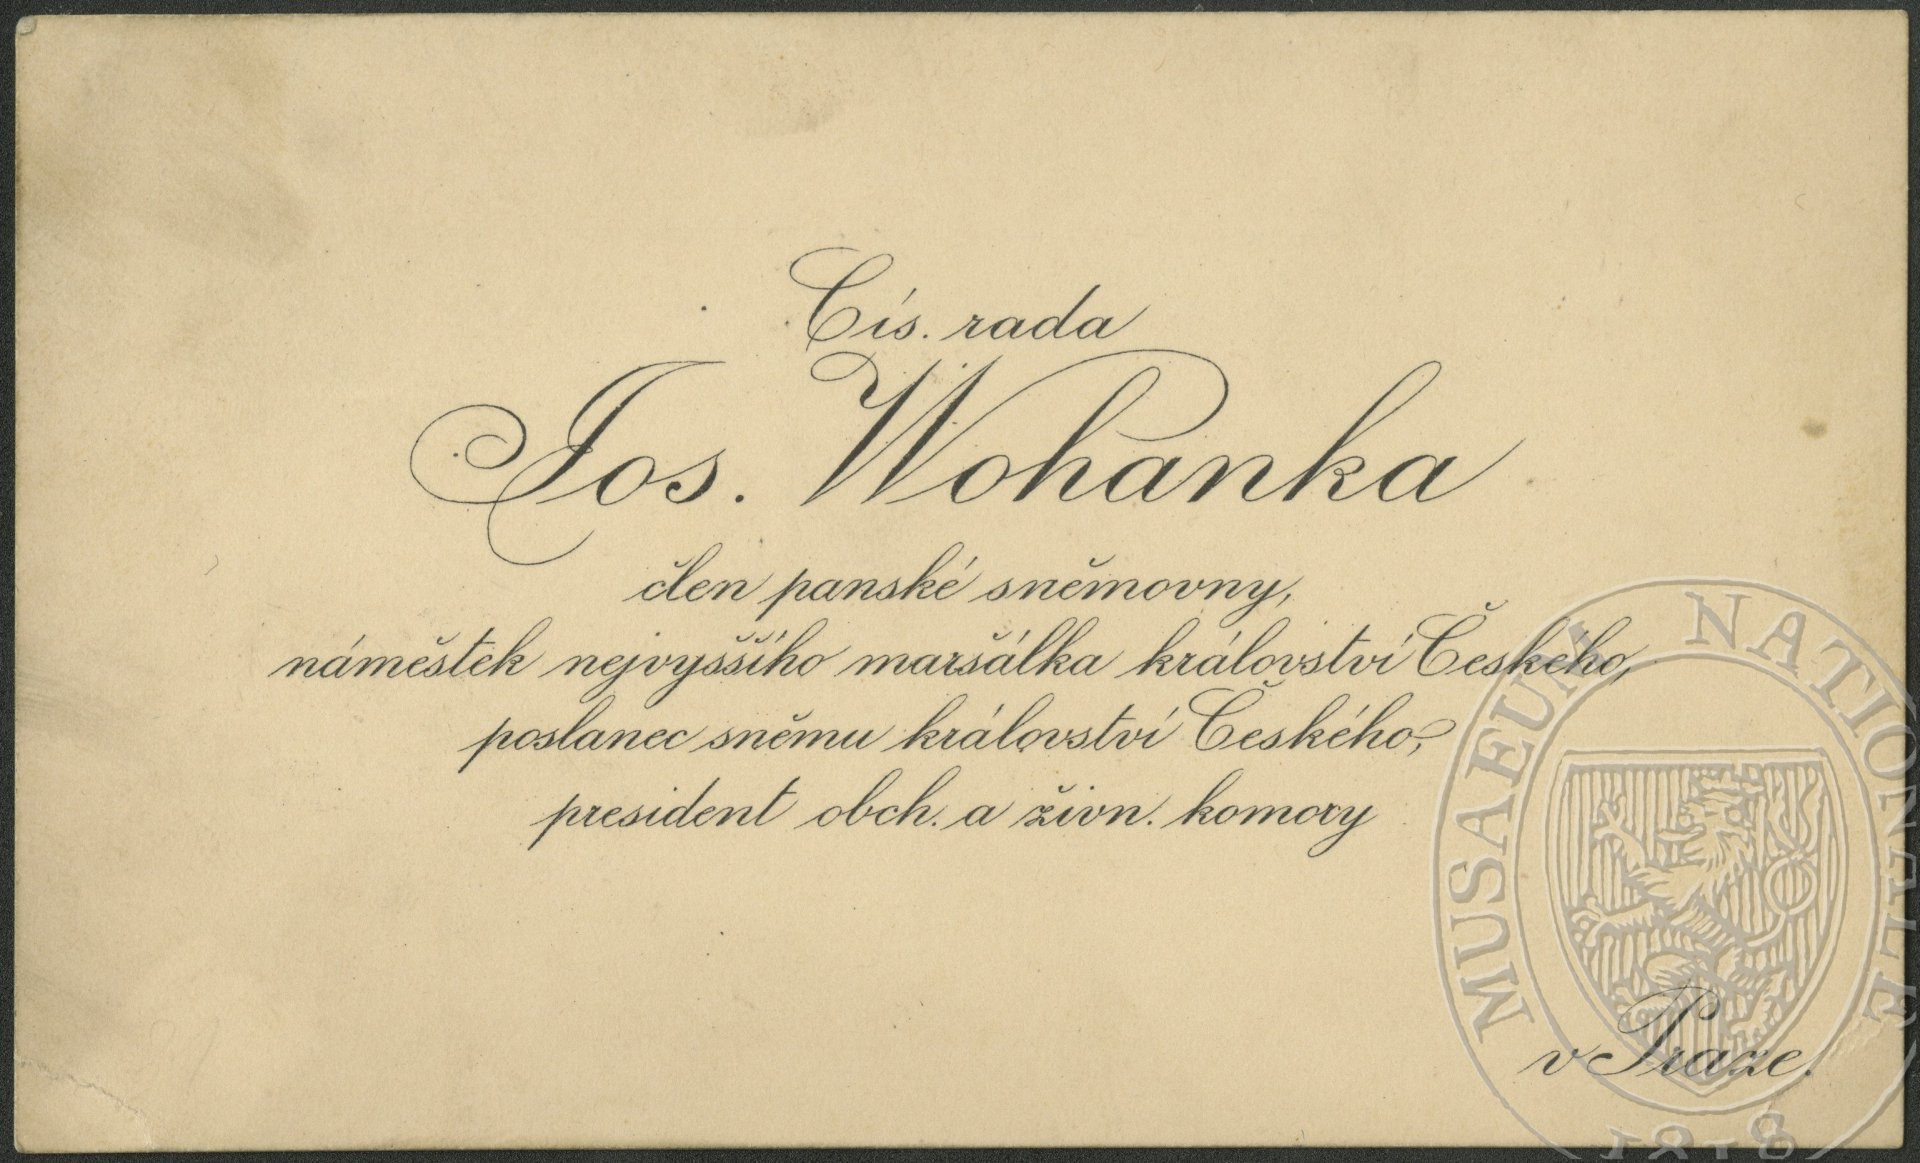 Cís. rada
Jos. Wohanka
člen panské sněmovny,
náměstek nejvyššího maršálka království Českého,
poslanec sněmu království Českého,
president obch. a živn. komory
v Praze.
MUSAEUM NATIONALE
1818